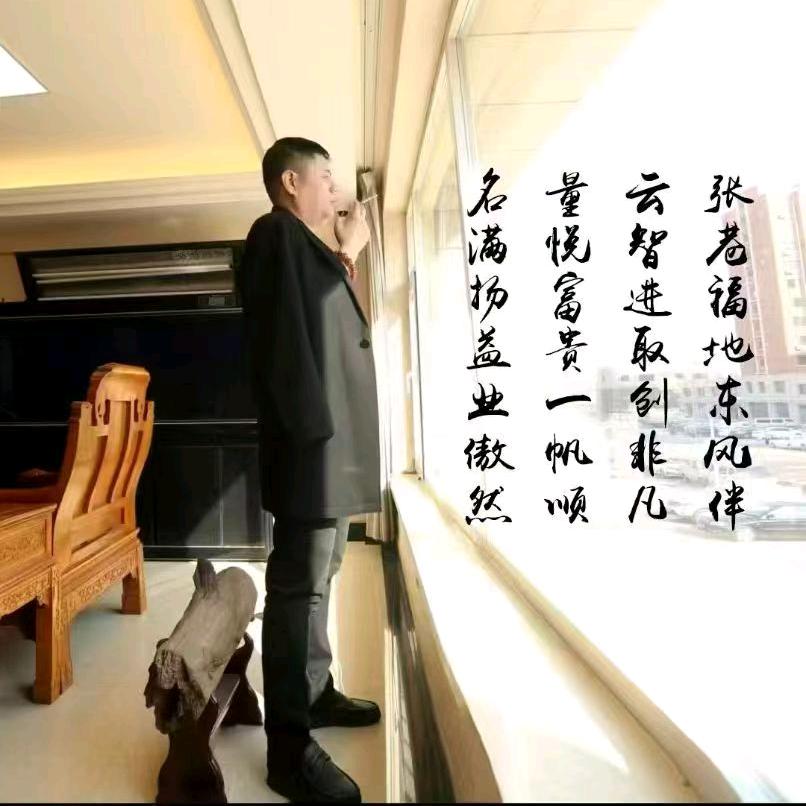 张巷福地东风伴
云智进取创非凡
量悦富贵一帆顺
名满扬益业傲然